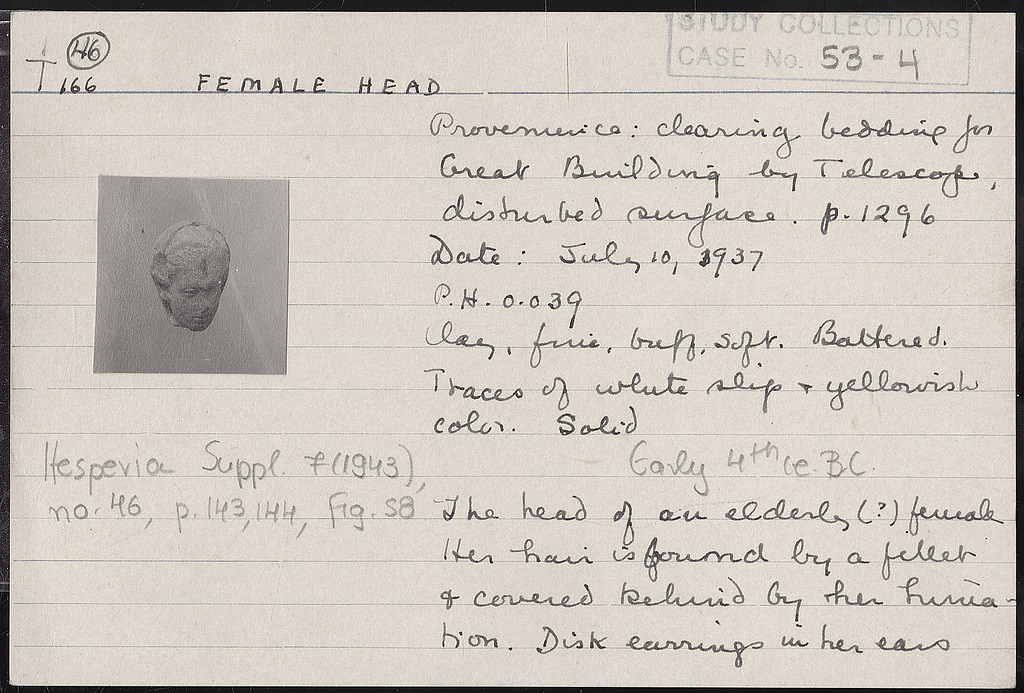 STUDY COLLECTIONS
CASE No. 53-4
46
T 166
FEMALE HEAD
Provenience: clearing bedding for
Great Building by Telescope,
disturbed surface. p. 1296
Date: July 10, 1937
P.H. 0.039
Clay, fine, buff, soft. Battered.
Traces of white slip + yellowish
color. Solid
Hesperia Suppl. 7 (1943),
no. 46, p. 143,144, Fig. 58
Early 4th ce. B.C.
The head of an elderly (?) female
Her hair is bound by a fillet
& covered behind by her
Disk earrings in her ears